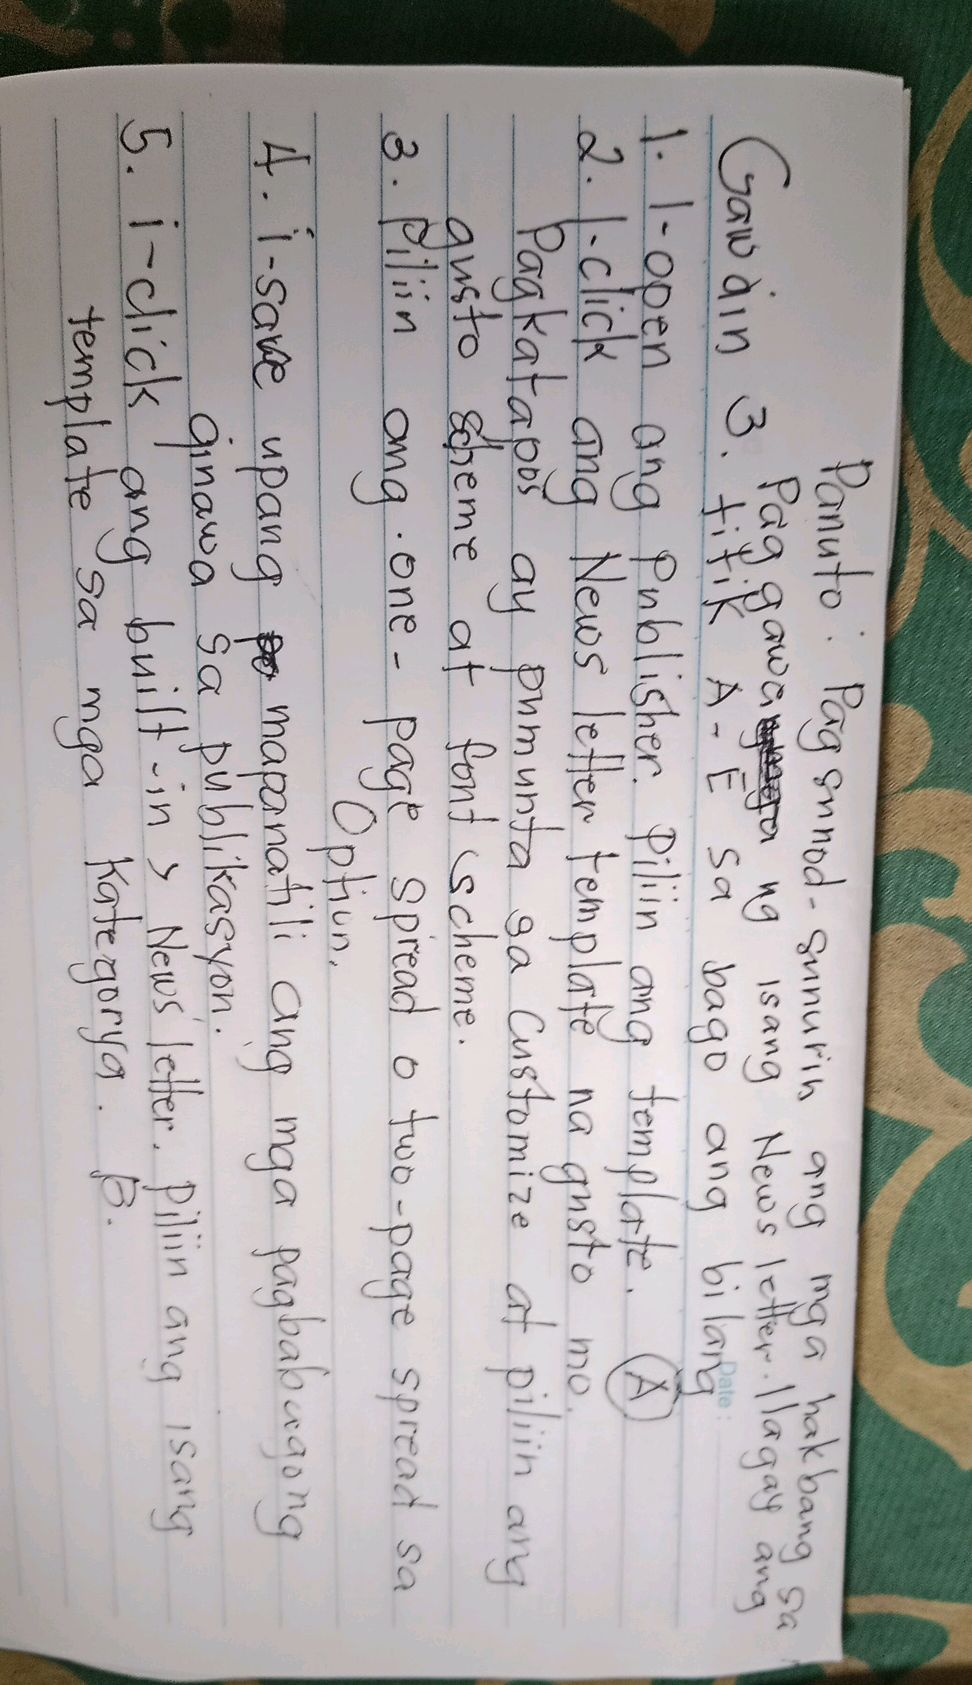 Panuto: Pagsunod-sunurin ang mga hakbang sa
Paggawa ng isang News letter. Ilagay ang
Gawain 3. titik A-E sa bago ang bilang
Date:
1. I-open ang Publisher. Piliin ang template. A
2. I-click ang News letter template na gusto mo.
Pagkatapos ay pumunta sa Customize at piliin ang
gusto scheme at font scheme.
3. piliin ang one-page spread o two-page spread sa
Option.
4. i-save upang mapanatili ang mga pagbabagong
ginawa sa publikasyon.
5. i-click ang built-in > News letter. piliin ang isang
template sa mga Kategorya. B.